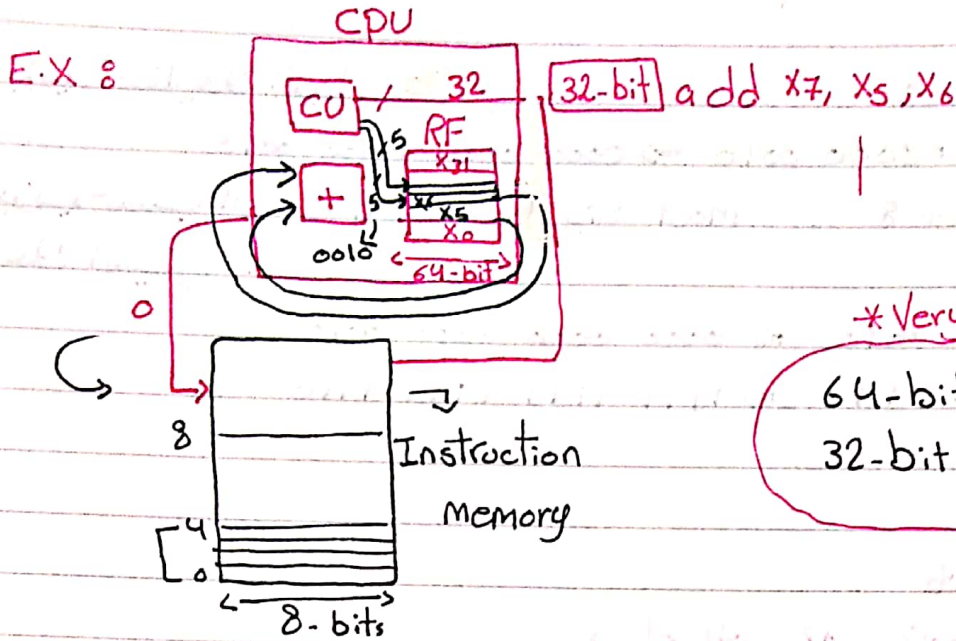 CPU
E.X :
CU
32
32-bit add x7, x5, x6
5
RF
X31
+
5
x6
X5
X0
0010
64-bit
0
* Very
64-bit
32-bit
8
Instruction
memory
4
0
8-bits